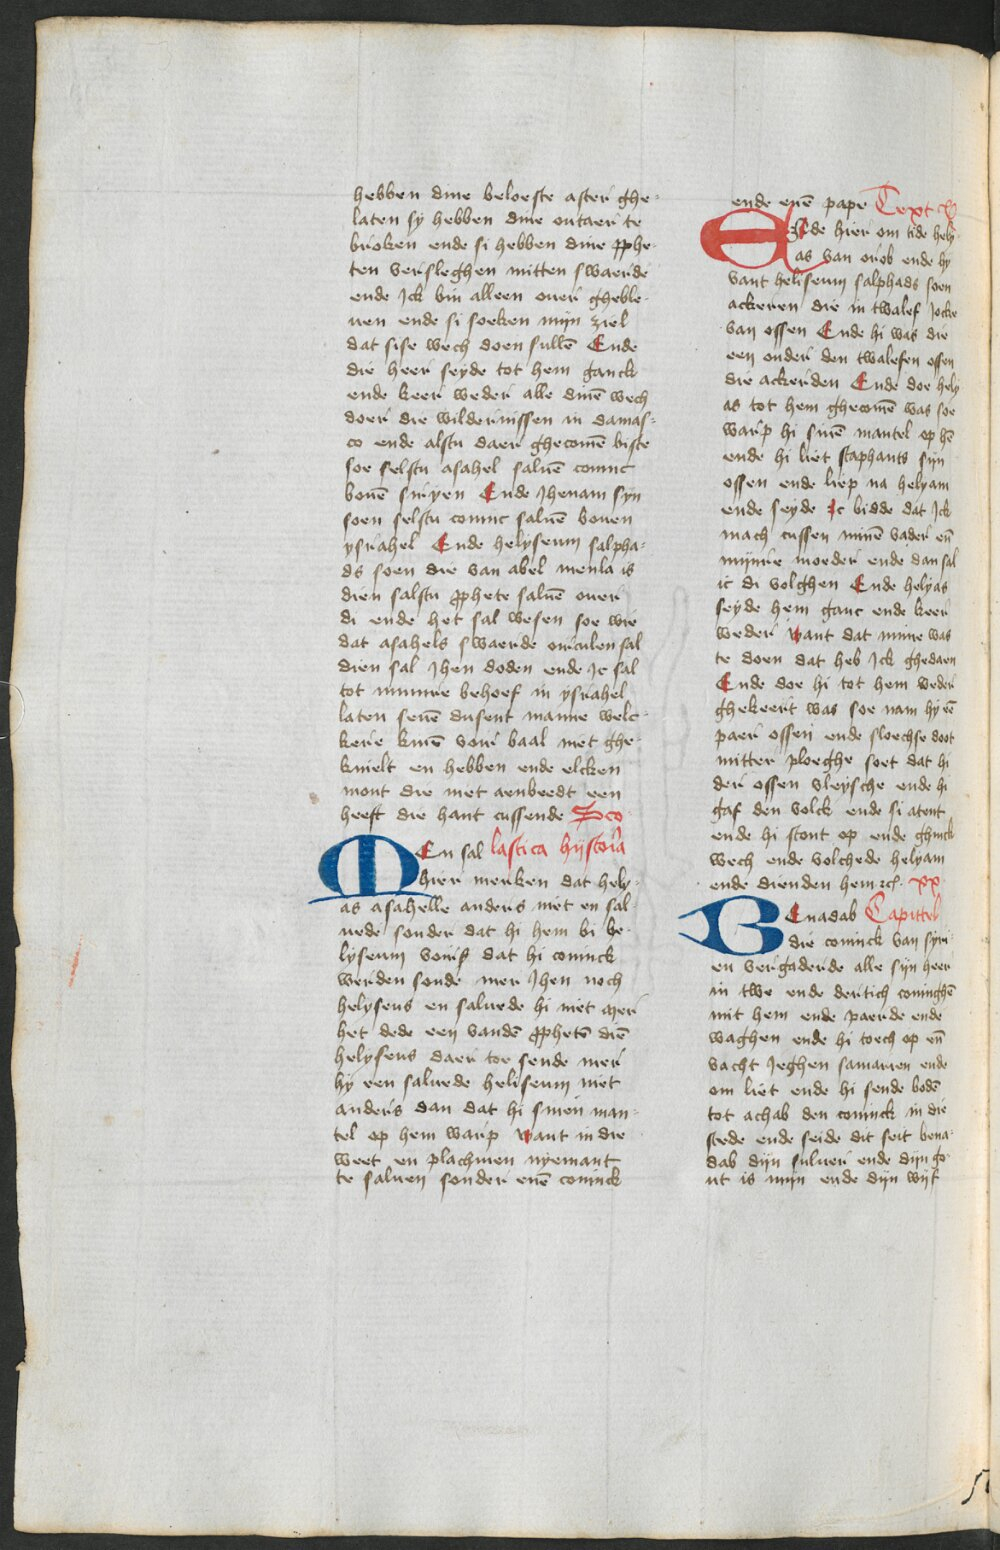 hebben dine beloefte after ghe-
laten sy hebben dine outaer te
broken ende si hebben dine pphe-
ten versleghen mitten swaerde
ende Jck bin alleen ouer gheble-
uen ende si soeken mijn ziel
dat sise wech doen sullē Ende
die heer seyde tot hem ganck
ende keer weder alle dinē wech
doer die wildernissen in damas-
co ende alstu daer ghecomē biste
soe selstu asahel saluē coninc
bouē siryen Ende Jhenam syn
soen selstu coninc saluē bouen
ysrahel Ende helyseum salpha-
ds soen die van abel menla is
dien salstu pphete saluē ouer
di ende het sal wesen soe wie
dat asahels swaerde ontculen sal
dien sal Jhen doden ende Jc sal
tot minnre behoef in ysrahel
laten seuē dusent manne welc-
kere knien vour baal niet ghe-
knielt en hebben ende elcken
mont die niet aenbeedt een
heeft die hant cussende Sco-
MEn sal lastica hijstoria
hier merken dat hely-
as asahelle anders niet en sal-
uede sonder dat hi hem bi he-
lyseum vours dat hi coninck
werden soude mer Jhen noch
helyseus en saluede hi niet mer
het dede een vandē pphetē diē
helyseus daer toe sende mer
hy een saluede heliseum niet
anders dan dat hi sinen man-
tel op hem warp want in die
weet en plachmen nyemant
te saluen sonder enē coninck
ende enē pape Text xv
Ende hier om tide hely-
as van orob ende hy
vant heliseum salphads soen
ackeren die in twalef Jocke
van ossen Ende hi was die
een onder den twalefen ossen
die ackerden Ende doe hely
as tot hem ghecomē was soe
warp hi sinē mantel op hē
ende hi liet staphants syn
ossen ende liep na helyam
ende seyde Jc bidde dat Jck
mach cussen minē vader eñ
mijnre moeder ende dan sal
ic di volghen Ende helyas
seyde hem ganc ende keer
weder want dat mine was
te doen dat heb Jck ghedaen
Ende doe hi tot hem weder
ghekeert was soe nam hy eē
paer ossen ende sloechse doot
mitter ploeghe soet dat hi
der ossen vleysche ende hi
gaf den volck ende si atent
ende hi stont op ende ghinck
wech ende volchede helyam
ende dienden hem rcl. xx
BEnadab Capittel
die coninck van syri-
en vergaderde alle sijn heer
in twe ende dertich coninghē
mit hem ende paerde ende
waghen ende hi toech op eñ
vacht Jeghen samarien ende
om liet ende hi sende bodē
tot achab den coninck in die
stede ende seide dit seit bena-
dab dijn suluer ende dijn go-
ut is mijn ende dijn wijf